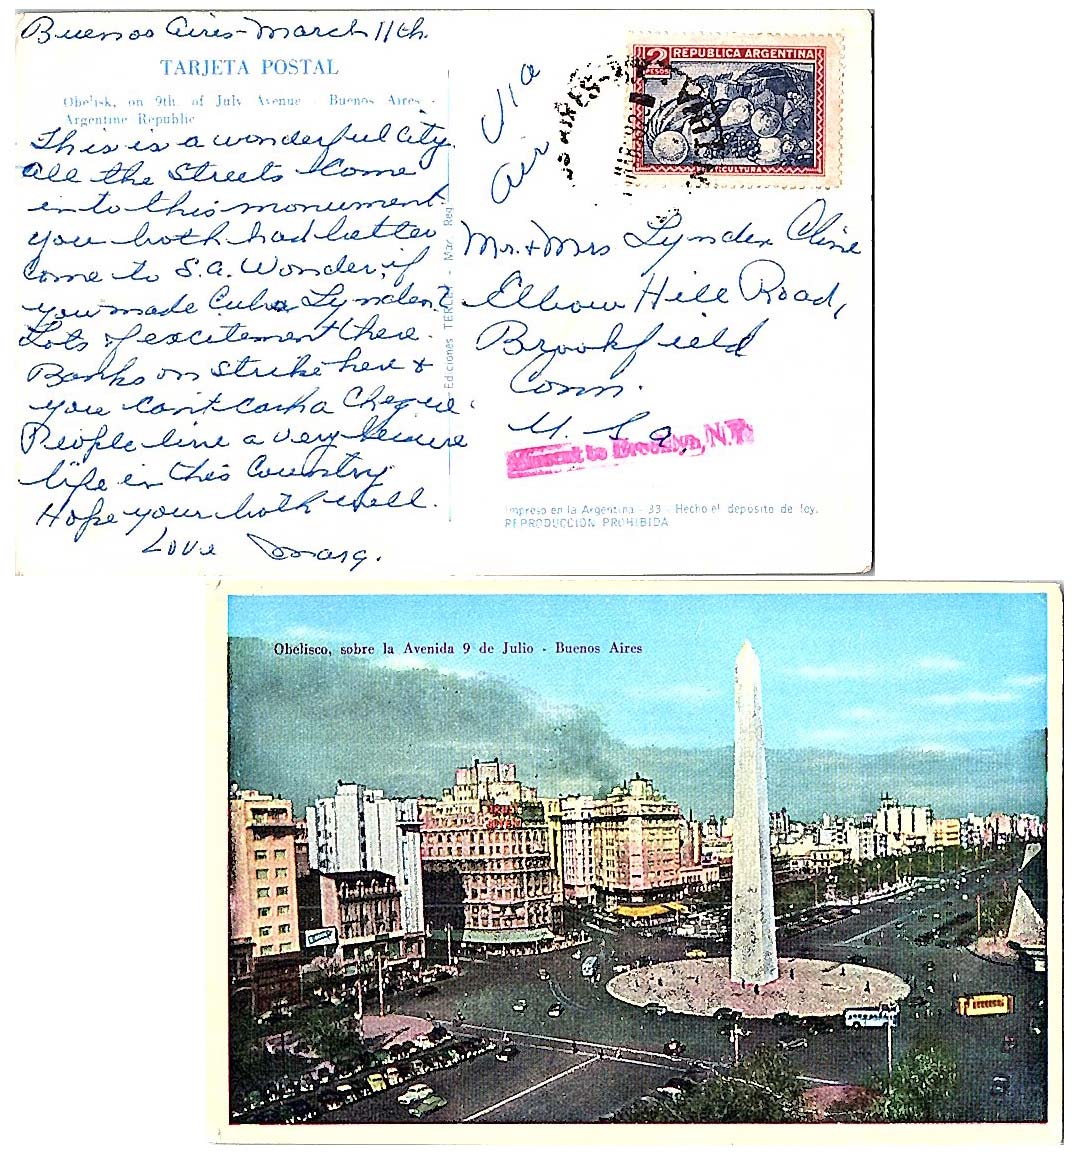 Buenos Aires - March 11th.
TARJETA POSTAL
Obelisk, on 9th. of July Avenue - Buenos Aires -
Argentine Republic
This is a wonderful city.
All the streets come
into this monument
you both had better
come to S.A. Wonder, if
you made Cuba Lynden?
Lots of excitement there.
Banks on strike here &
you can't cash a cheque.
People live a very
life in this Country
Hope your both well.
Love Marg.
Ediciones - Mar. Reg.
Via
Air
2
PESOS
REPUBLICA ARGENTINA
Mr. + Mrs Lynden Cline
Elbow Hill Road,
Brookfield
Conn.
U. S. a.
to Brooklyn, N.Y.
Impreso en la Argentina - 33 - Hecho el deposito de ley.
REPRODUCCION PROHIBIDA
Obelisco, sobre la Avenida 9 de Julio - Buenos Aires